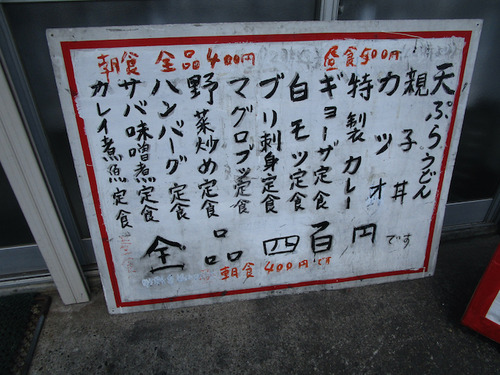 朝食 全品400円 昼食500円
天ぷらうどん
親子丼
カツオ
特製カレー
ギョーザ定食
白モツ定食
ブリ刺身定食
マグロブツ定食
野菜炒め定食
ハンバーグ定食
サバ味噌煮定食
カレイ煮魚定食
全品四百円です
朝食400円です